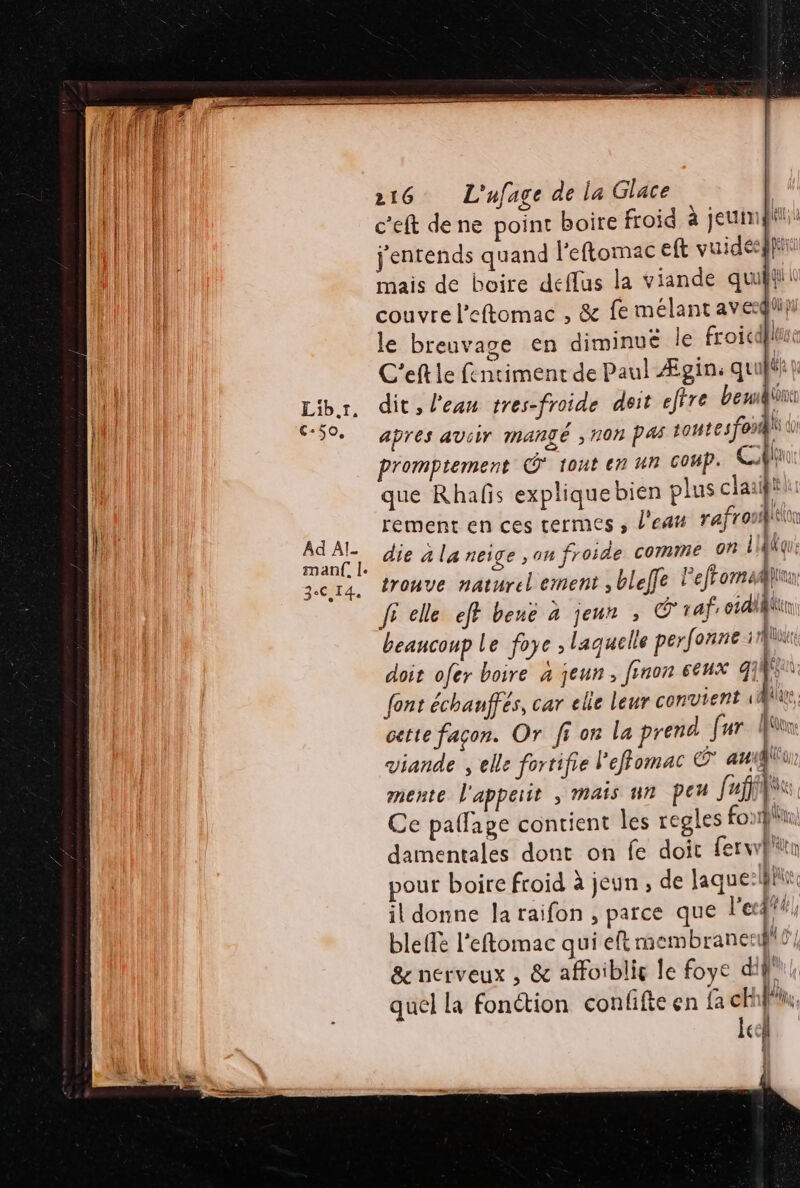 216 L'uſage de la Glace
c'eſt de ne point boire froid à jeun
j'entends quand l'eſtomac eſt vuide
mais de boire deſſus la viande qui
couvre l'eſtomac , & ſe mélant avec
le breuvage en diminuë le froid
C'eſt le ſentiment de Paul Ægin. qui
Lib.1. dit , l'eau tres-froide doit eſtre beuë
c.50. apres avoir mangé , non pas toutesfois
promptement & tout en un coup.
que Rhaſis explique bien plus clai
rement en ces termes , l'eau rafroi
Ad Al- die à la neige , ou froide comme on
manſ. l. trouve naturel ement , bleſſe l'eſtomac
3.c.14. ſi elle eſt beuë à jeun , & rafroidi
beaucoup le foye , laquelle perſonne
doit oſer boire à jeun , ſinon ceux
ſont échauffés, car elle leur convient
cette façon. Or ſi on la prend ſur
viande , elle fortifie l'eſtomac & aug
mente l'appetit , mais un peu ſuffi
Ce paſſage contient les regles fon
damentales dont on ſe doit ſervi
pour boire froid à jeun , de laque
il donne la raiſon , parce que
bleſſe l'eſtomac qui eſt membraneu
& nerveux , & affoiblit le foye
quel la fonction conſiſte en ſa